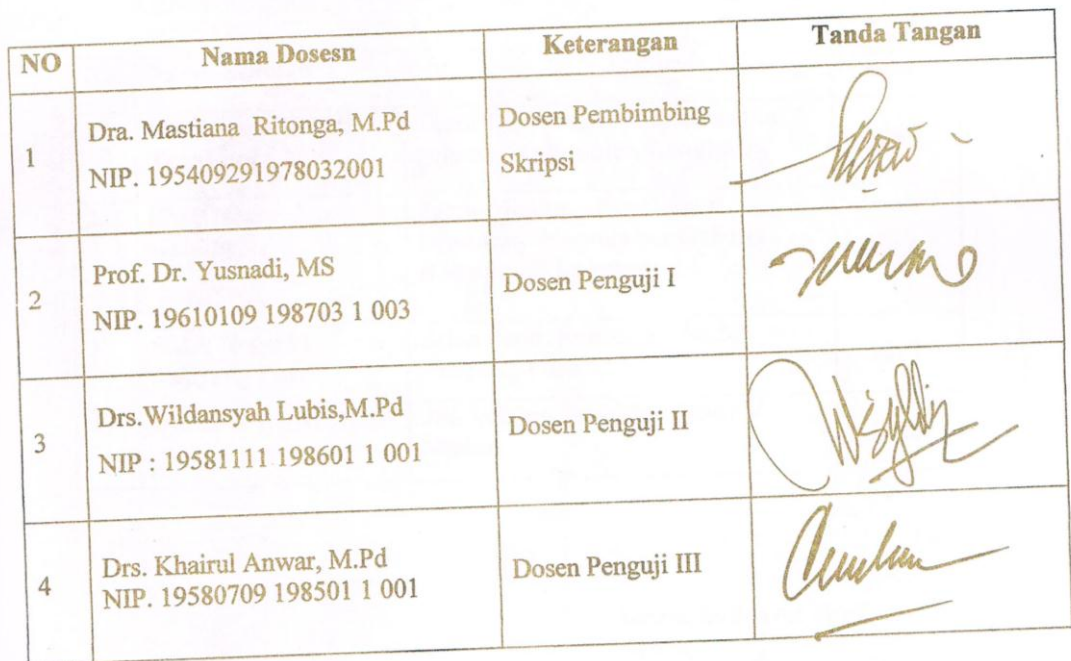 NO Nama Dosesn Keterangan Tanda Tangan
1
Dra. Mastiana Ritonga, M.Pd
NIP. 195409291978032001
Dosen Pembimbing
Skripsi
2
Prof. Dr. Yusnadi, MS
NIP. 19610109 198703 1 003
Dosen Penguji I
3
Drs.Wildansyah Lubis,M.Pd
NIP : 19581111 198601 1 001
Dosen Penguji II
4
Drs. Khairul Anwar, M.Pd
NIP. 19580709 198501 1 001
Dosen Penguji III